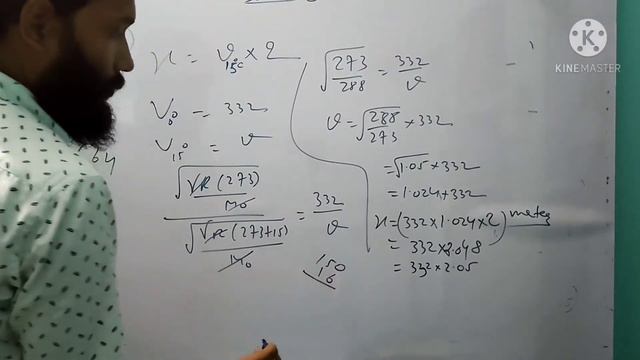 x = v₁₅°c × 2
V₀° = 332
V₁₅° = v
√(γR(273)/M₀) / √(γR(273+15)/M₀) = 332/v
150
√(273/288) = 332/v
v = √(288/273) × 332
= √1.05 × 332
= 1.024 × 332
x = (332 × 1.024 × 2) meter
= 332 × 2.048
= 332 × 2.05
KINEMASTER